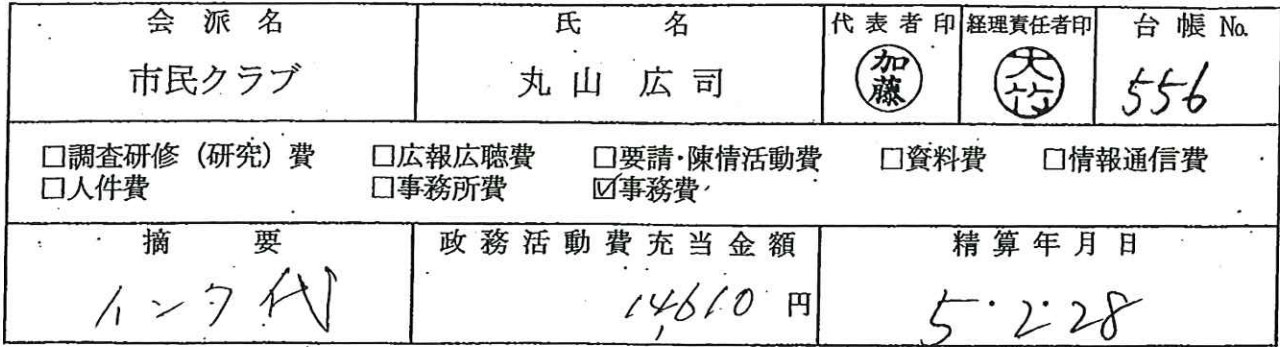 会派名 氏名 代表者印 経理責任者印 台帳No.
市民クラブ 丸山広司 加藤 大竹 556
□調査研修(研究)費 □広報広聴費 □要請・陳情活動費 □資料費 □情報通信費
□人件費 □事務所費 ☑事務費
摘要 政務活動費充当金額 精算年月日
インク代 14,610円 5・2・28